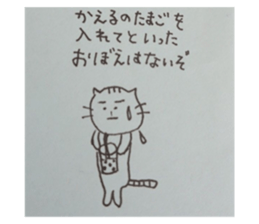 かえるのたまごを
入れてといった
おりぼえはないぞ